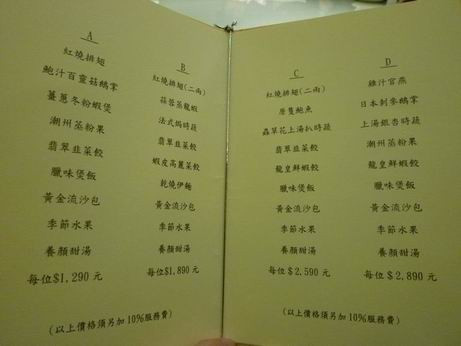 A
紅燒排翅
鮑汁百靈菇鵝掌
薑蔥冬粉蝦煲
潮州蒸粉果
翡翠韭菜餃
臘味煲飯
黃金流沙包
季節水果
養顏甜湯
每位$1,290元
B
紅燒排翅(二兩)
蒜蓉蒸龍蝦
法式焗時蔬
翡翠韭菜餃
蝦皮高麗菜餃
乾燒伊麵
黃金流沙包
季節水果
養顏甜湯
每位$1,890元
(以上價格須另加10%服務費)
C
紅燒排翅(二兩)
原隻鮑魚
蟲草花上湯扒時蔬
翡翠韭菜餃
龍皇鮮蝦餃
臘味煲飯
黃金流沙包
季節水果
養顏甜湯
每位$2,590元
D
雞汁官燕
日本刺參鵝掌
上湯銀杏時蔬
潮州蒸粉果
龍皇鮮蝦餃
臘味煲飯
黃金流沙包
季節水果
養顏甜湯
每位$2,890元
(以上價格須另加10%服務費)